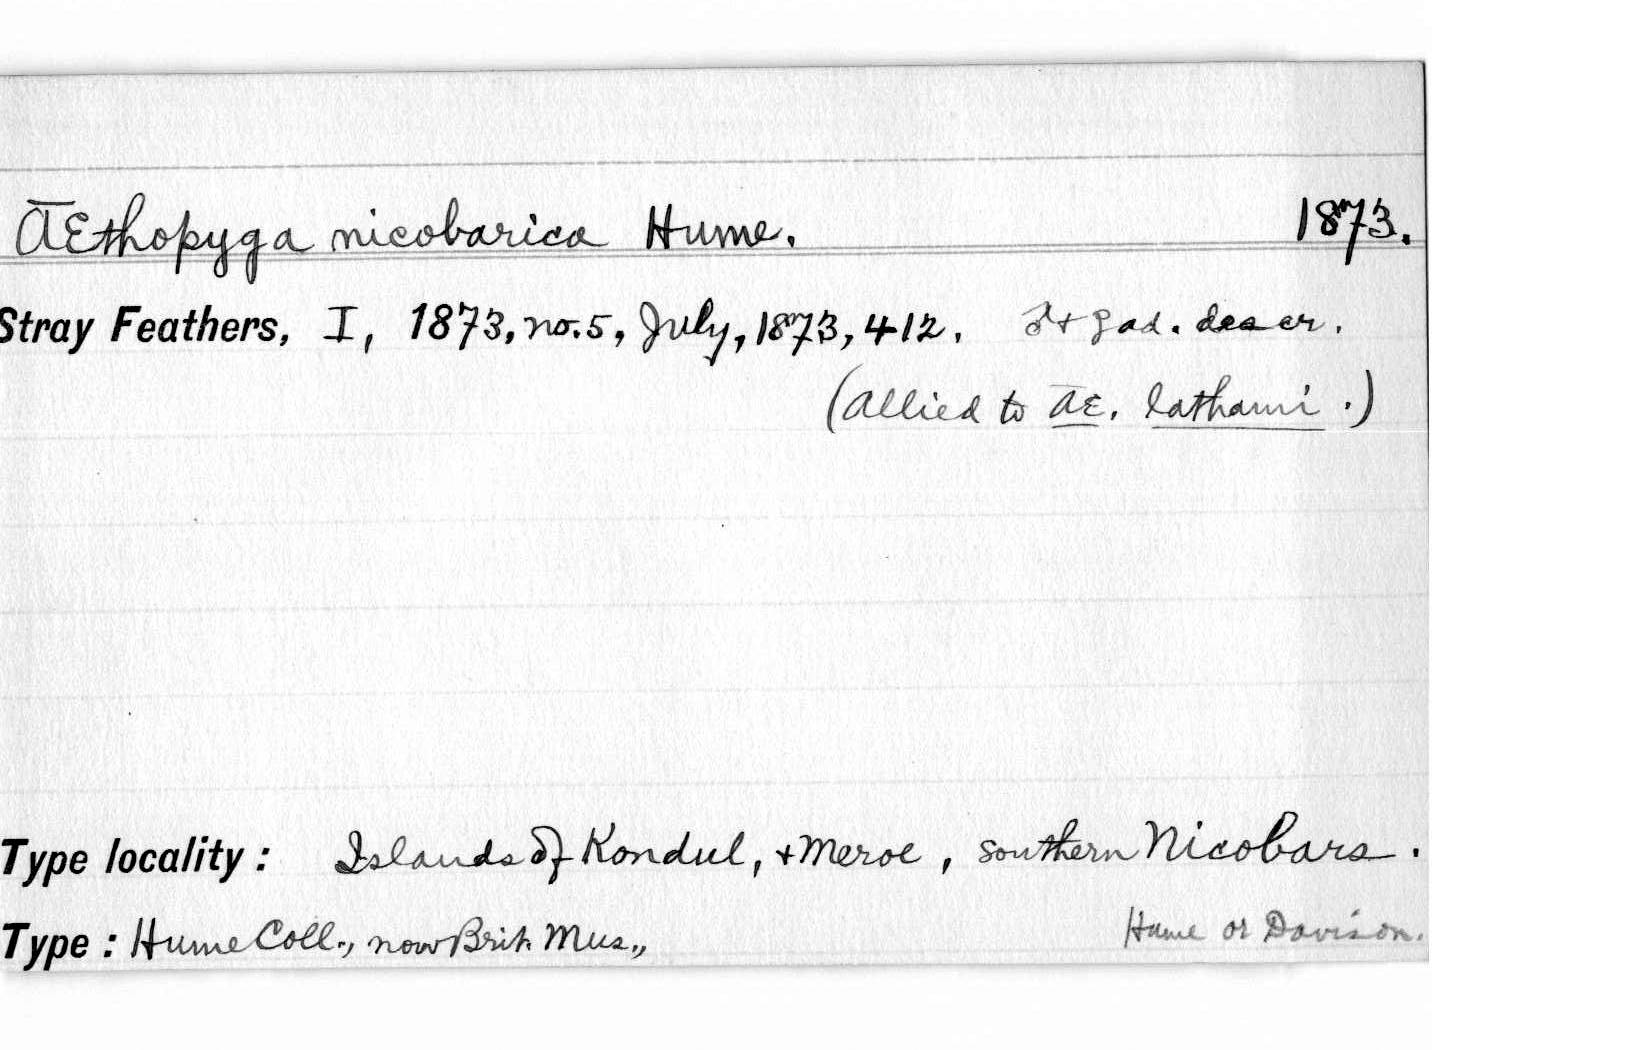 Æthopyga nicobarica Hume. 1873.
Stray Feathers, I, 1873, no. 5, July, 1873, 412. ♂ + ♀ ad. descr.
(Allied to Æ. lathami.)
Type locality: Islands of Kondul, + Meroe, southern Nicobars.
Type: Hume Coll., now Brit. Mus., Hume or Davison.